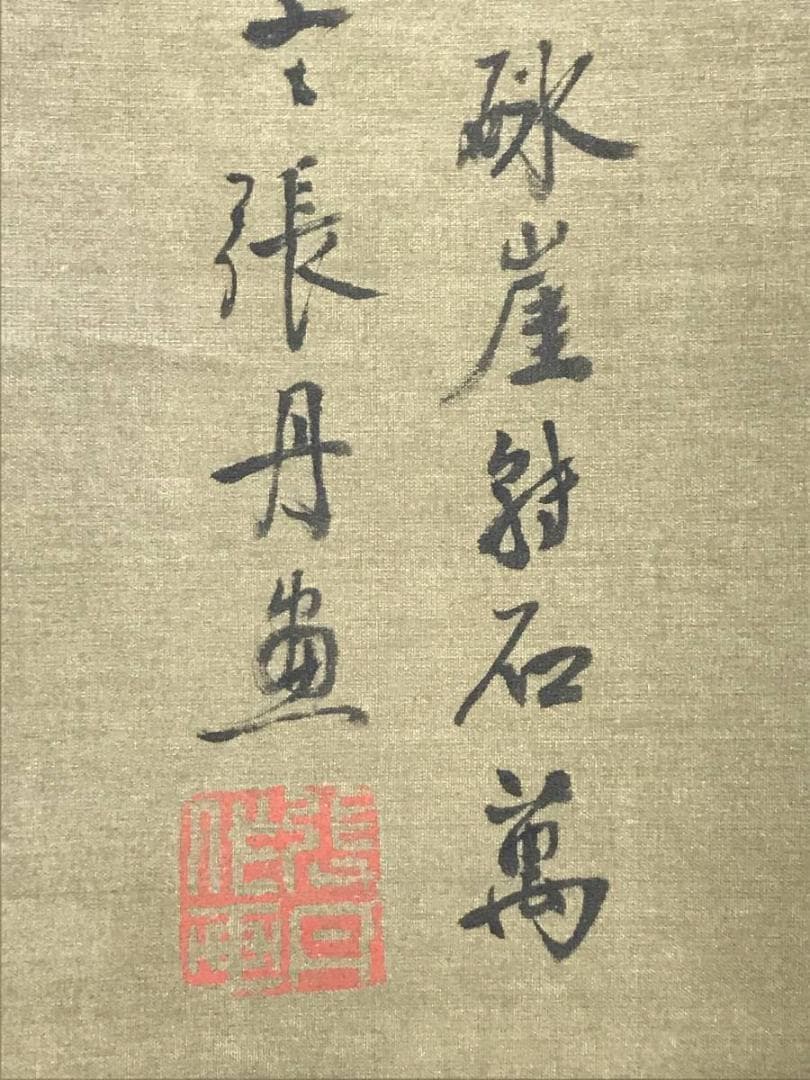 砅崖轉石萬
張丹畫